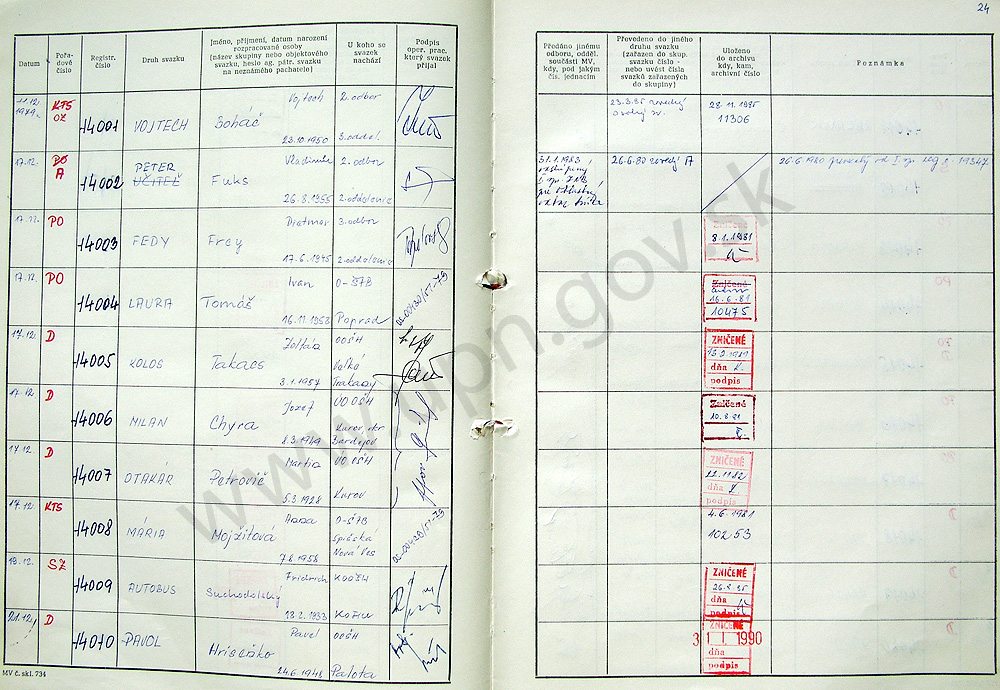 24
Datum
Pořa-
dové
číslo
Registr.
číslo
Druh svazku
Jméno, příjmení, datum narození
rozpracované osoby
(název skupiny nebo objektového
svazku, heslo ag. pátr. svazku
na neznámého pachatele)
U koho se
svazek
nachází
Podpis
oper. prac.
který svazek
přijal
Předáno jinému
odboru, odděl.
součásti MV,
kdy, pod jakým
čís. jednacím
Převedeno do jiného
druhu svazku
(zařazen do skup.
svazku číslo -
nebo uvést čísla
svazků zařazených
do skupiny)
Uloženo
do archivu
kdy, kam,
archivní číslo
Poznámka
11.12.
1979
KTS
02
14001
VOJTECH
Vojtech
Boháč
23.10.1950
2. odbor
3. oddel.
28.11.1985
11306
17.12.
PO
A
14002
PETER
UČITEĽ
Vladimír
Fuks
26.8.1955
2. odbor
2. oddelenie
31.1.1983
26.6.80
A
26.6.1980
17.12.
PO
14003
FEDY
Dietmar
Frey
17.6.1945
3. odbor
2. oddelenie
8.1.1981
17.12.
PO
14004
LAURA
Ivan
Tomáš
16.11.1953
O-ŠTB
Poprad
Zničené
16.6.81
10475
17.12.
D
14005
KOLOS
Zoltán
Takacs
3.1.1957
OOŠH
Veľké
Trakany
ZNIČENÉ
dňa
podpis
17.12.
D
14006
MILAN
Jozef
Chyra
8.3.1949
ÚO OŠH
Kurov, okr
Bardejov
Zničené
10.8.81
17.12.
D
14007
OTAKÁR
Martin
Petrovič
5.3.1928
ÚO OŠH
Kurov
ZNIČENÉ
dňa
podpis
17.12.
KTS
14008
MÁRIA
Anna
Mojžitová
7.6.1958
O-ŠTB
Spišská
Nová Ves
4.6.1981
10253
19.12.
SZ
14009
AUTOBUS
Fridrich
Suchodolský
18.2.1933
KOOŠH
Košice
ZNIČENÉ
26.8.85
dňa
podpis
21.12.
D
14010
PAVOL
Pavel
Hriseňko
24.6.1948
OOŠH
Palota
ZNIČENÉ
3 1 I 1990
dňa
podpis
MV č. skl. 734
www.upn.gov.sk